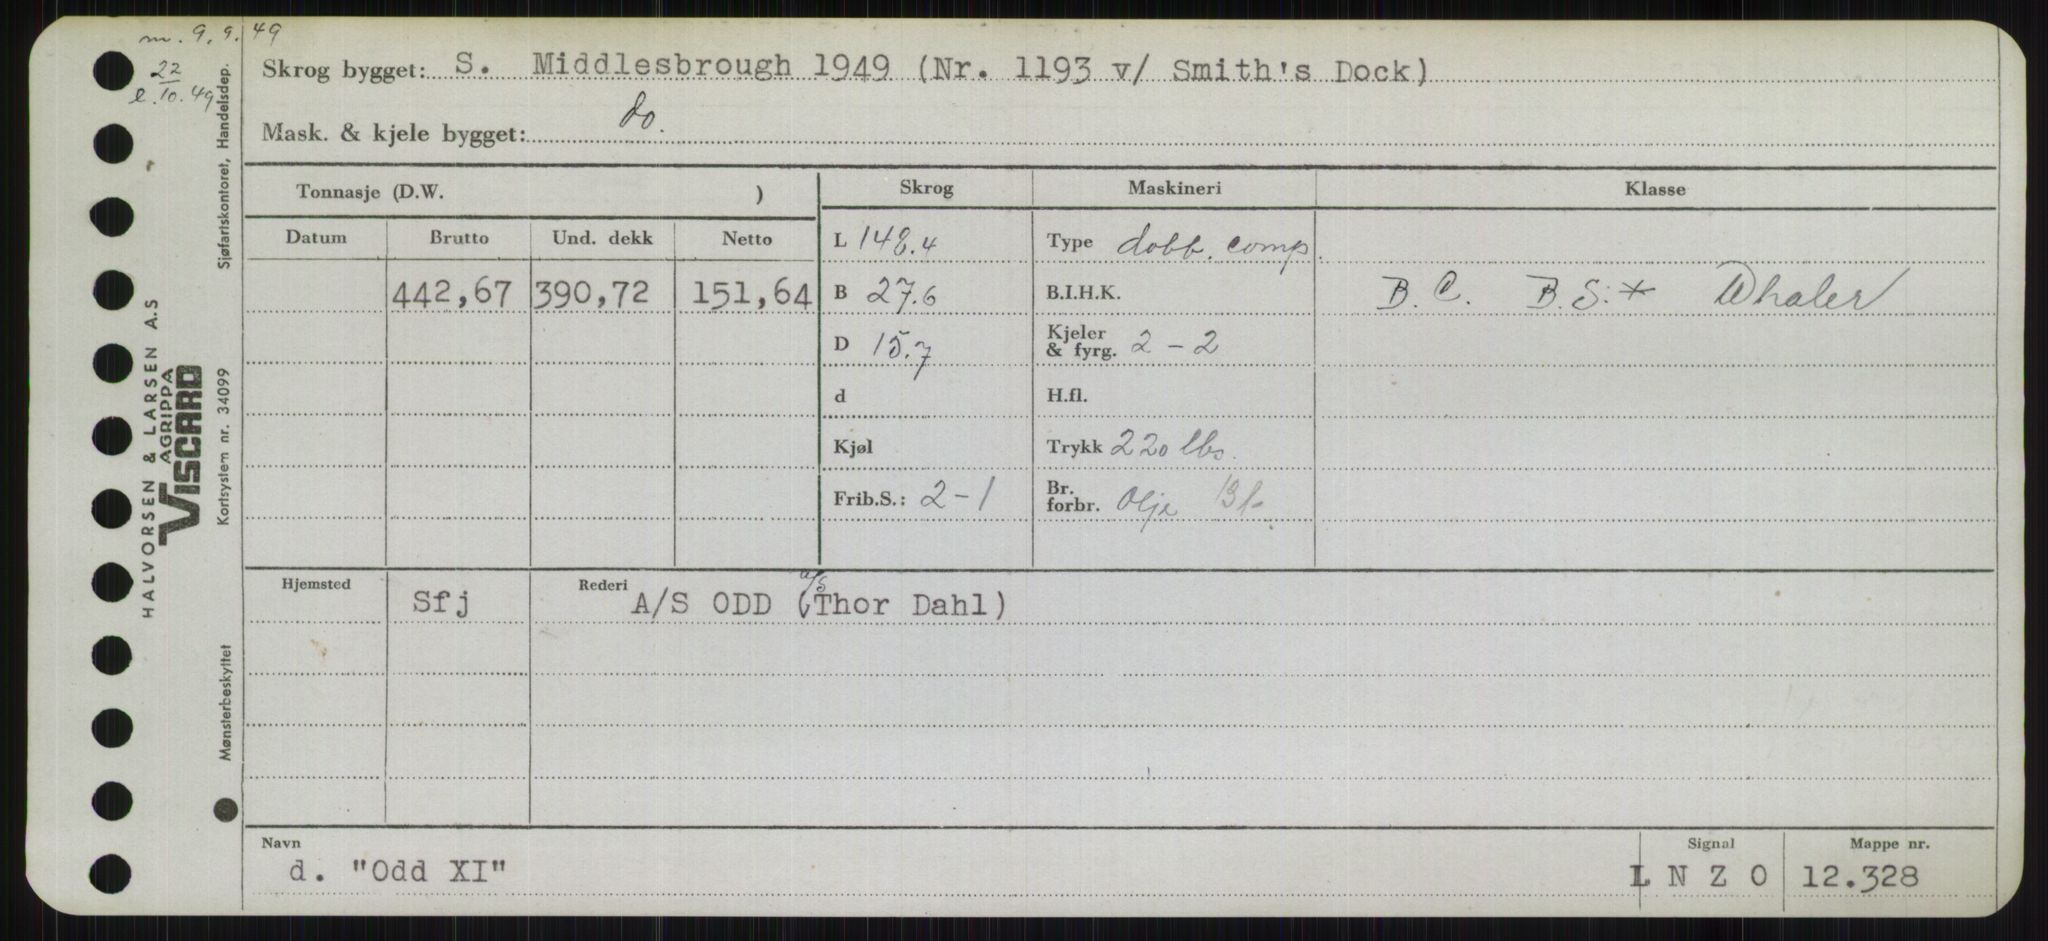 m. 9. 9. 49
22
l. 10. 49
Skrog bygget: S. Middlesbrough 1949 (Nr. 1193 v/ Smith's Dock)
Mask. & kjele bygget: do.
Tonnasje (D.W. ) Skrog Maskineri Klasse
Datum Brutto Und. dekk Netto L 148.4 Type dobb. comp.
442,67 390,72 151,64 B 27.6 B.I.H.K. B.C. B.S.* Whaler
D 15.7 Kjeler & fyrg. 2-2
d H.fl.
Kjøl Trykk 220 lbs.
Frib.S.: 2-1 Br. forbr. Olje
Hjemsted Sfj Rederi A/S ODD (A/S Thor Dahl)
Navn Signal Mappe nr.
d. "Odd XI" L N Z O 12.328
HALVORSEN & LARSEN A.S
AGRIPPA
VISCARD
Sjøfartskontoret, Handelsdep.
Kortsystem nr. 34099
Mønsterbeskyttet